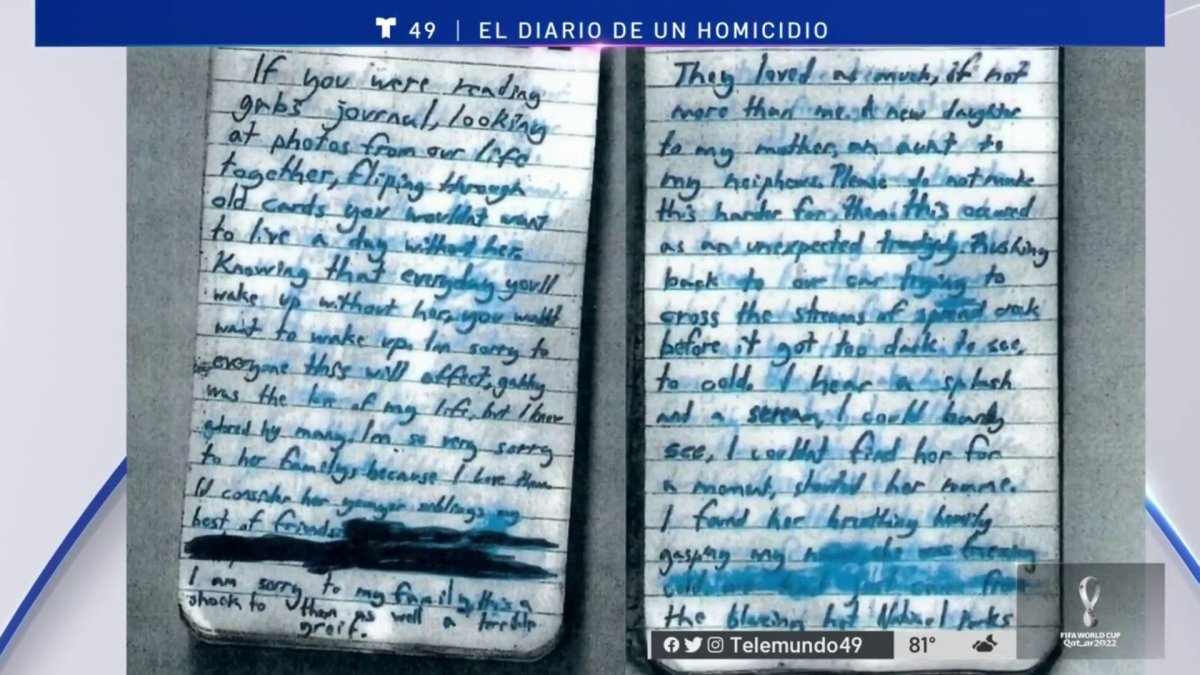 T 49 | EL DIARIO DE UN HOMICIDIO
If you were reading
gabs journal, looking
at photos from our life
together, fliping through
old cards you wouldnt want
to live a day without her.
Knowing that everyday you'll
wake up without her, you wouldnt
want to wake up. I'm sorry to
everyone this will affect, gabby
was the love of my life, but I know
adored by many. I'm so very sorry
to her familys because I love them.
I'd consider her younger siblings my
best of friends.
I am sorry to my family, this is a
shock to them as well a terrible
greif.
They loved as much, if not
more than me. A new daughter
to my mother, an aunt to
my neiphews. Please do not make
this harder for them, this occured
as an unexpected tradgedy. Rushing
back to our car trying to
cross the streams of spread creek
before it got too dark to see,
to cold. I hear a splash
and a scream, I could barely
see, I couldnt find her for
a moment, shouted her name.
I found her breathing heavily
gasping my
the blazing hot National Parks
Telemundo49 81°
FIFA WORLD CUP
Qatar2022